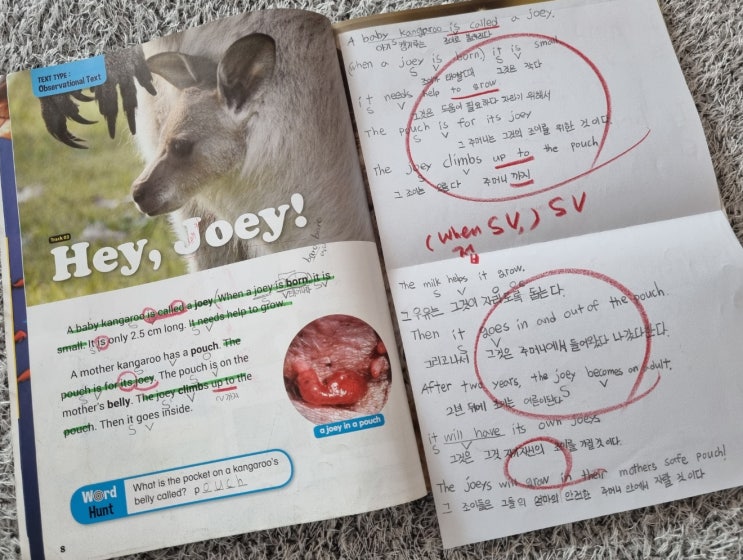 TEXT TYPE :
Observational Text
Track 03
Hey, Joey!
A baby kangaroo is called a joey. When a joey is born, it is
small. It is only 2.5 cm long. It needs help to grow.
A mother kangaroo has a pouch. The
pouch is for its joey. The pouch is on the
mother's belly. The joey climbs up to the
pouch. Then it goes inside.
S V
~까지
a joey in a pouch
Word
Hunt
What is the pocket on a kangaroo's
belly called? pouch
8
A baby kangaroo is called a joey.
아기 캥거루는 조이로 불려진다
(when a joey is born,) it is small
S V S V
조이가 태어날때 그것은 작다
it needs help to grow.
S V
그것은 도움이 필요하다 자라기 위해서
The pouch is for its joey
S V
그 주머니는 그것의 조이를 위한 것이다
The joey climbs up to the pouch
S V
그 조이는 오른다 주머니 까지
(when SV,) SV
접
The milk helps it grow.
S V O
그 우유는 그것이 자라도록 돕는다.
Then it goes in and out of the pouch.
S V
그리고나서 그것은 주머니에서 들어왔다 나갔다한다.
After two years, the joey becomes an adult.
S V
2년 뒤에 조이는 어른이된다
it will have its own joeys
S V
그것은 그것 자신의 조이를 가질 것이다.
The joeys will grow in their mothers safe pouch!
그 조이들은 그들의 엄마의 안전한 주머니 안에서 자랄 것이다